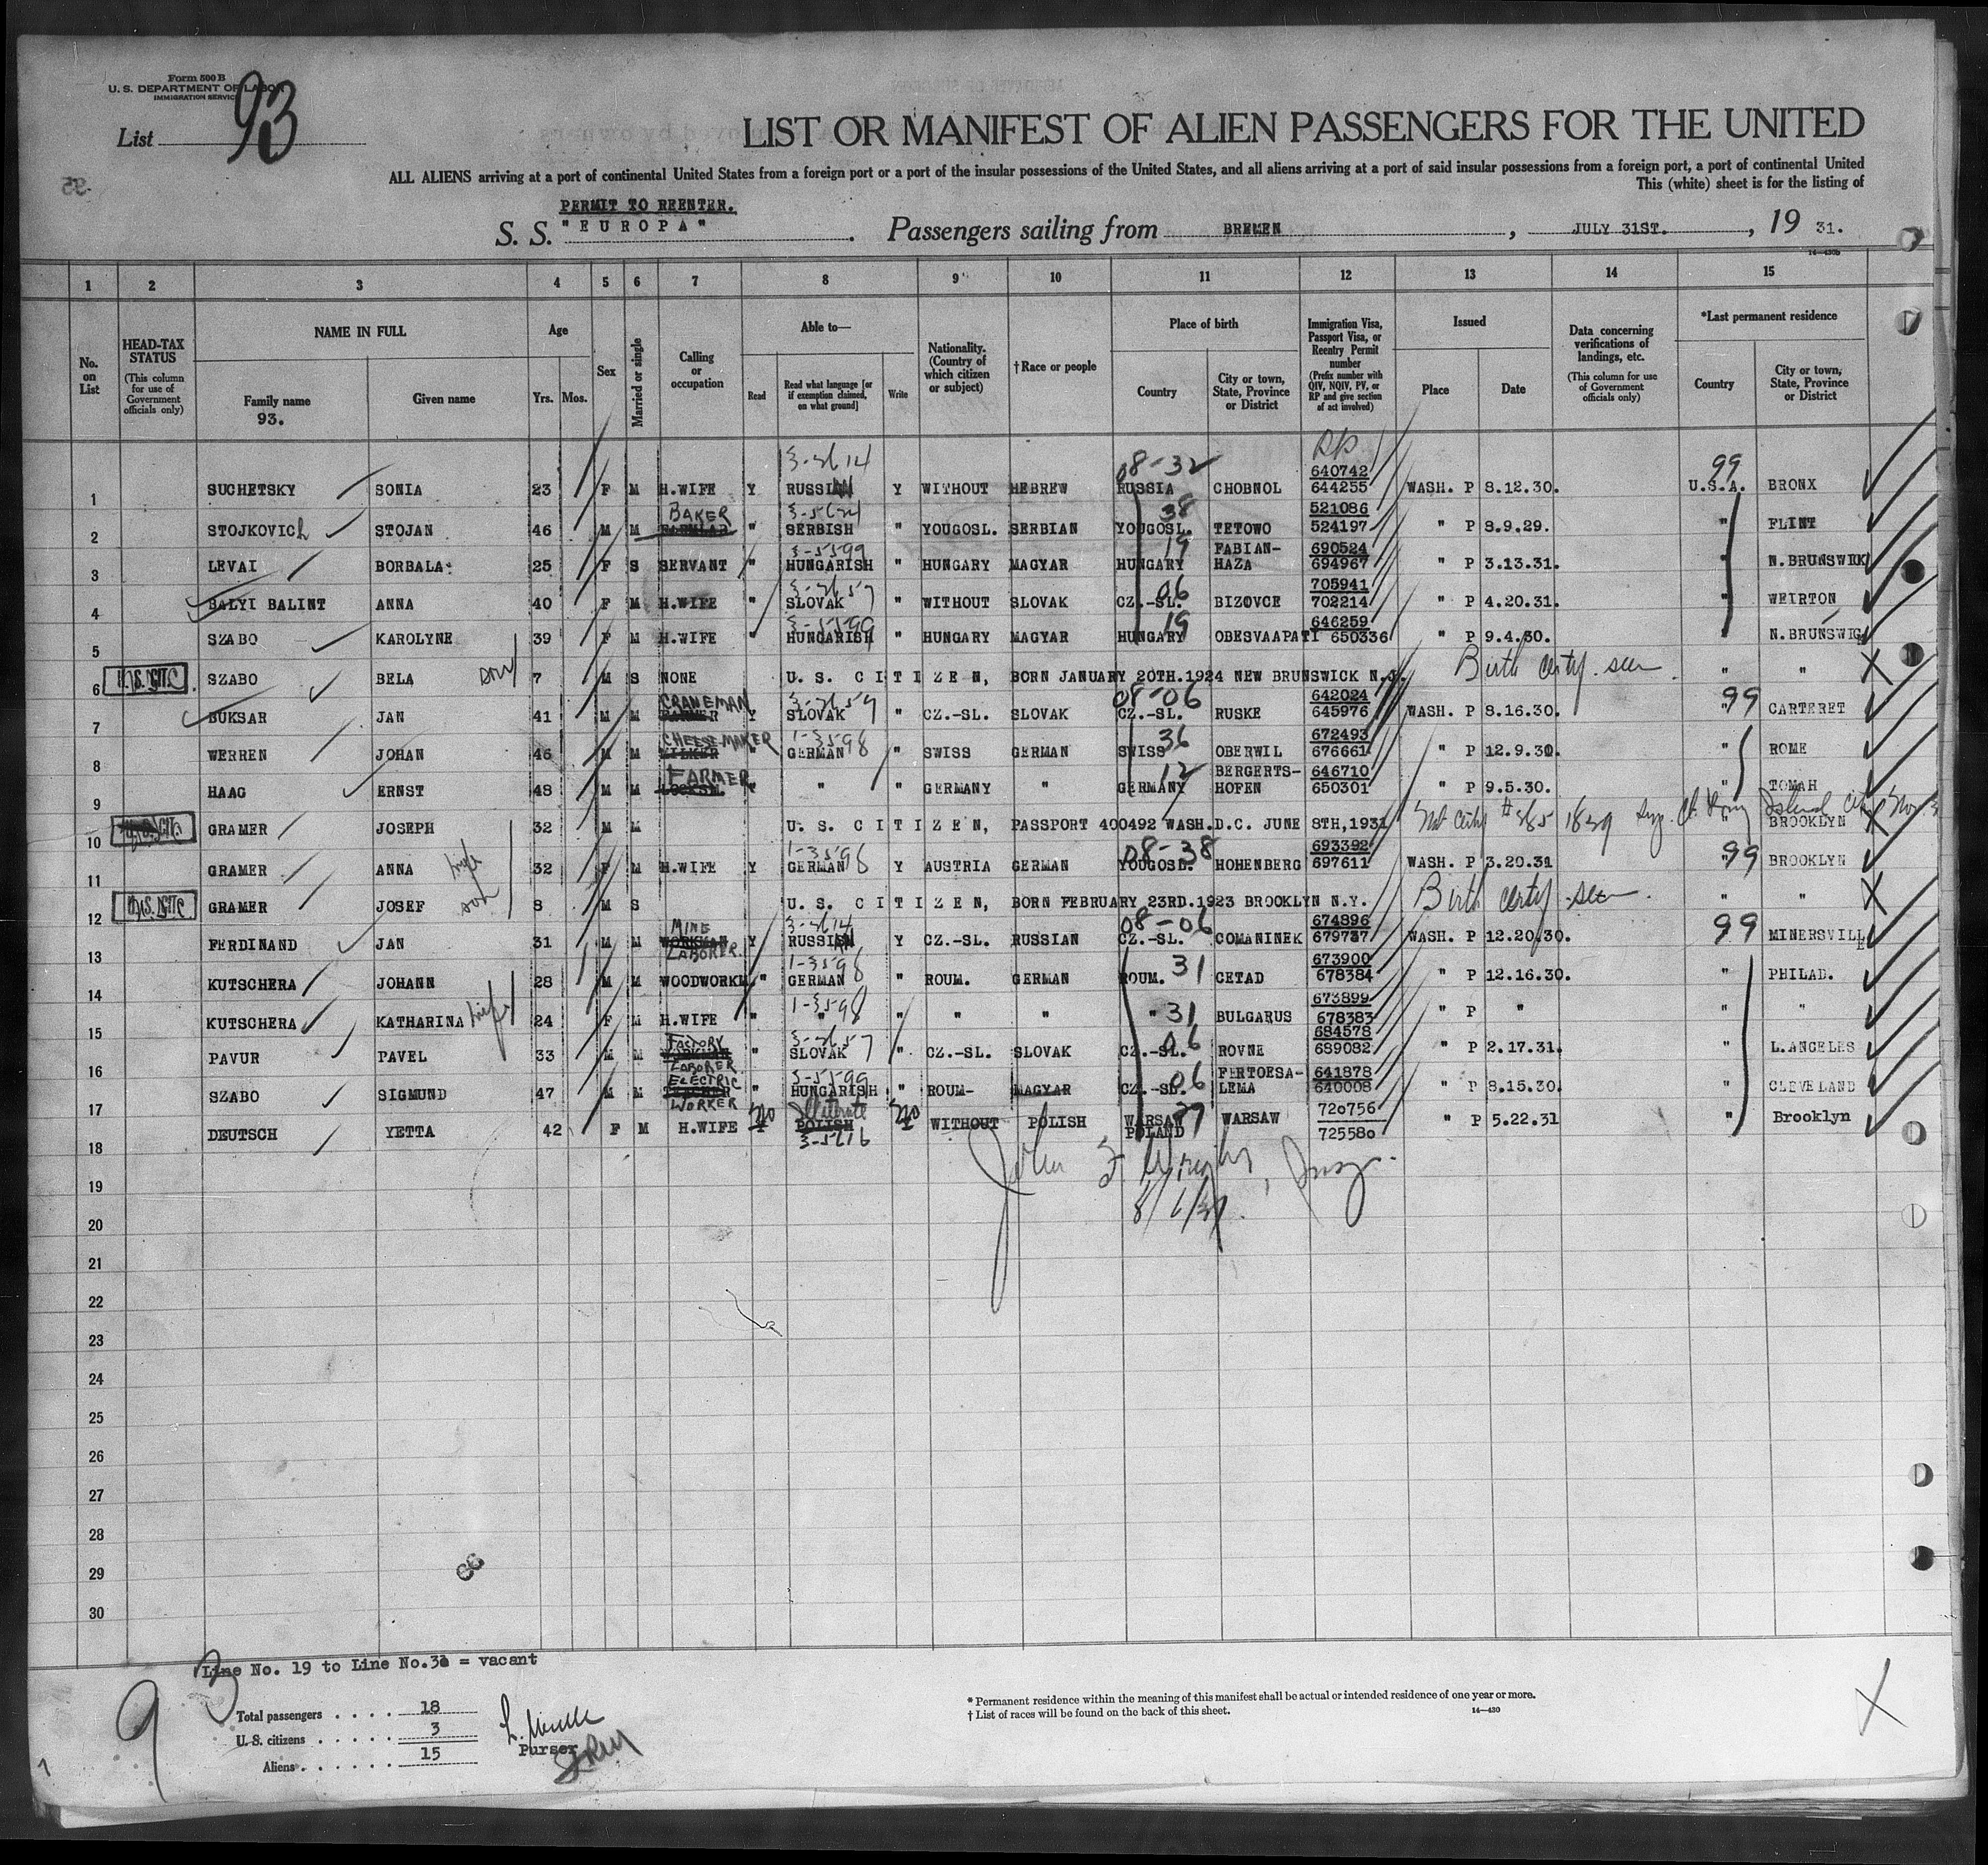 Form 500 B
U. S. DEPARTMENT OF LABOR
IMMIGRATION SERVICE
List 93
LIST OR MANIFEST OF ALIEN PASSENGERS FOR THE UNITED
ALL ALIENS arriving at a port of continental United States from a foreign port or a port of the insular possessions of the United States, and all aliens arriving at a port of said insular possessions from a foreign port, a port of continental United
This (white) sheet is for the listing of
PERMIT TO REENTER.
S. S. "EUROPA" . Passengers sailing from BREMEN , JULY 31ST. , 19 31.
14-430b
1 2 3 4 5 6 7 8 9 10 11 12 13 14 15
No. on List
HEAD-TAX STATUS (This column for use of Government officials only)
NAME IN FULL
Family name
93.
Given name
Age
Yrs. Mos.
Sex
Married or single
Calling or occupation
Able to—
Read
Read what language [or if exemption claimed, on what ground]
Write
Nationality. (Country of which citizen or subject)
† Race or people
Place of birth
Country
City or town, State, Province or District
Immigration Visa, Passport Visa, or Reentry Permit number (Prefix number with QIV, NQIV, PV, or RP and give section of act involved)
Issued
Place
Date
Data concerning verifications of landings, etc. (This column for use of Government officials only)
*Last permanent residence
Country
City or town, State, Province or District
RP
1 SUCHETSKY SONIA 23 F M H.WIFE Y RUSSIAN Y WITHOUT HEBREW RUSSIA 08-32 CHOBNOL 640742 644255 WASH. P 8.12.30. 99 U.S.A. BRONX
2 STOJKOVICh STOJAN 46 M M BAKER " SERBISH " YOUGOSL. SERBIAN YOUGOSL. 38 TETOWO 521086 524197 " P 8.9.29. " FLINT
3 LEVAI BORBALA 25 F S SERVANT " 3-5599 HUNGARISH " HUNGARY MAGYAR HUNGARY 19 FABIAN-HAZA 690524 694967 " P 3.13.31. " N.BRUNSWICK
4 BALYI BALINT ANNA 40 F M H.WIFE " SLOVAK " WITHOUT SLOVAK CZ.-SL. 06 BIZOVCE 705941 702214 " P 4.20.31. " WEIRTON
5 SZABO KAROLYNE 39 F M H.WIFE " 3-5599 HUNGARISH " HUNGARY MAGYAR HUNGARY 19 OBESVAAPATI 646259 650336 " P 9.4.30. " N.BRUNSWIG
6 U.S. CIT. SZABO BELA son 7 M S NONE U. S. CITIZEN, BORN JANUARY 20TH.1924 NEW BRUNSWICK N.J. Birth certy. seen " " X
7 BUKSAR JAN 41 M M CRANEMAN Y SLOVAK " CZ.-SL. SLOVAK CZ.-SL. 08-06 RUSKE 642024 645976 WASH. P 8.16.30. " 99 CARTERET
8 WERREN JOHAN 46 M M CHEESE-MAKER " 1-3598 GERMAN " SWISS GERMAN SWISS 36 OBERWIL 672493 676661 " P 12.9.30. " ROME
9 HAAG ERNST 48 M M FARMER " " " GERMANY " GERMANY 12 BERGERTS-HOFEN 646710 650301 " P 9.5.30. " TOMAH
10 GRAMER JOSEPH 32 M M U. S. CITIZEN, PASSPORT 400492 WASH.D.C. JUNE 8TH,1931 " BROOKLYN X
11 GRAMER ANNA wife 32 F M H.WIFE Y 1-3598 GERMAN Y AUSTRIA GERMAN YOUGOSL. 08-38 HOHENBERG 693392 697611 WASH. P 3.20.31 " 99 BROOKLYN
12 U.S. CIT. GRAMER JOSEF son 8 M S U. S. CITIZEN, BORN FEBRUARY 23RD.1923 BROOKLYN N.Y. Birth certy. seen " " X
13 FERDINAND JAN 31 M M MINE LABORER. Y RUSSIAN Y CZ.-SL. RUSSIAN CZ.-SL. 08-06 COMANINEK 674896 679737 WASH. P 12.20.30. 99 MINERSVILLE
14 KUTSCHERA JOHANN 28 M M WOODWORKM. " 1-3598 GERMAN " ROUM. GERMAN ROUM. 31 CETAD 673900 678384 " P 12.16.30. " PHILAD.
15 KUTSCHERA KATHARINA wife 24 F M H.WIFE " 1-3598 " " " " " 31 BULGARUS 673899 678383 " P " " "
16 PAVUR PAVEL 33 M M FACTORY LABORER " SLOVAK " CZ.-SL. SLOVAK CZ.-SL. 06 ROVNE 684578 689082 " P 2.17.31. " L.ANGELES
17 SZABO SIGMUND 47 M M ELECTRIC WORKER " 3-5599 HUNGARISH " ROUM- MAGYAR CZ.-SL. 06 FERTOESA-LEMA 641878 640008 " P 8.15.30. " CLEVELAND
18 DEUTSCH YETTA 42 F M H.WIFE no Illiterate POLISH no WITHOUT POLISH WARSAW POLAND WARSAW 720756 725580 " P 5.22.31 " Brooklyn
19
20
21
22
23
24
25
26
27
28
29
30
Line No. 19 to Line No.30 = vacant
93
Total passengers . . . . 18
U. S. citizens . . . . . 3
Aliens . . . . . . 15
Purser
* Permanent residence within the meaning of this manifest shall be actual or intended residence of one year or more.
† List of races will be found on the back of this sheet.
14-430